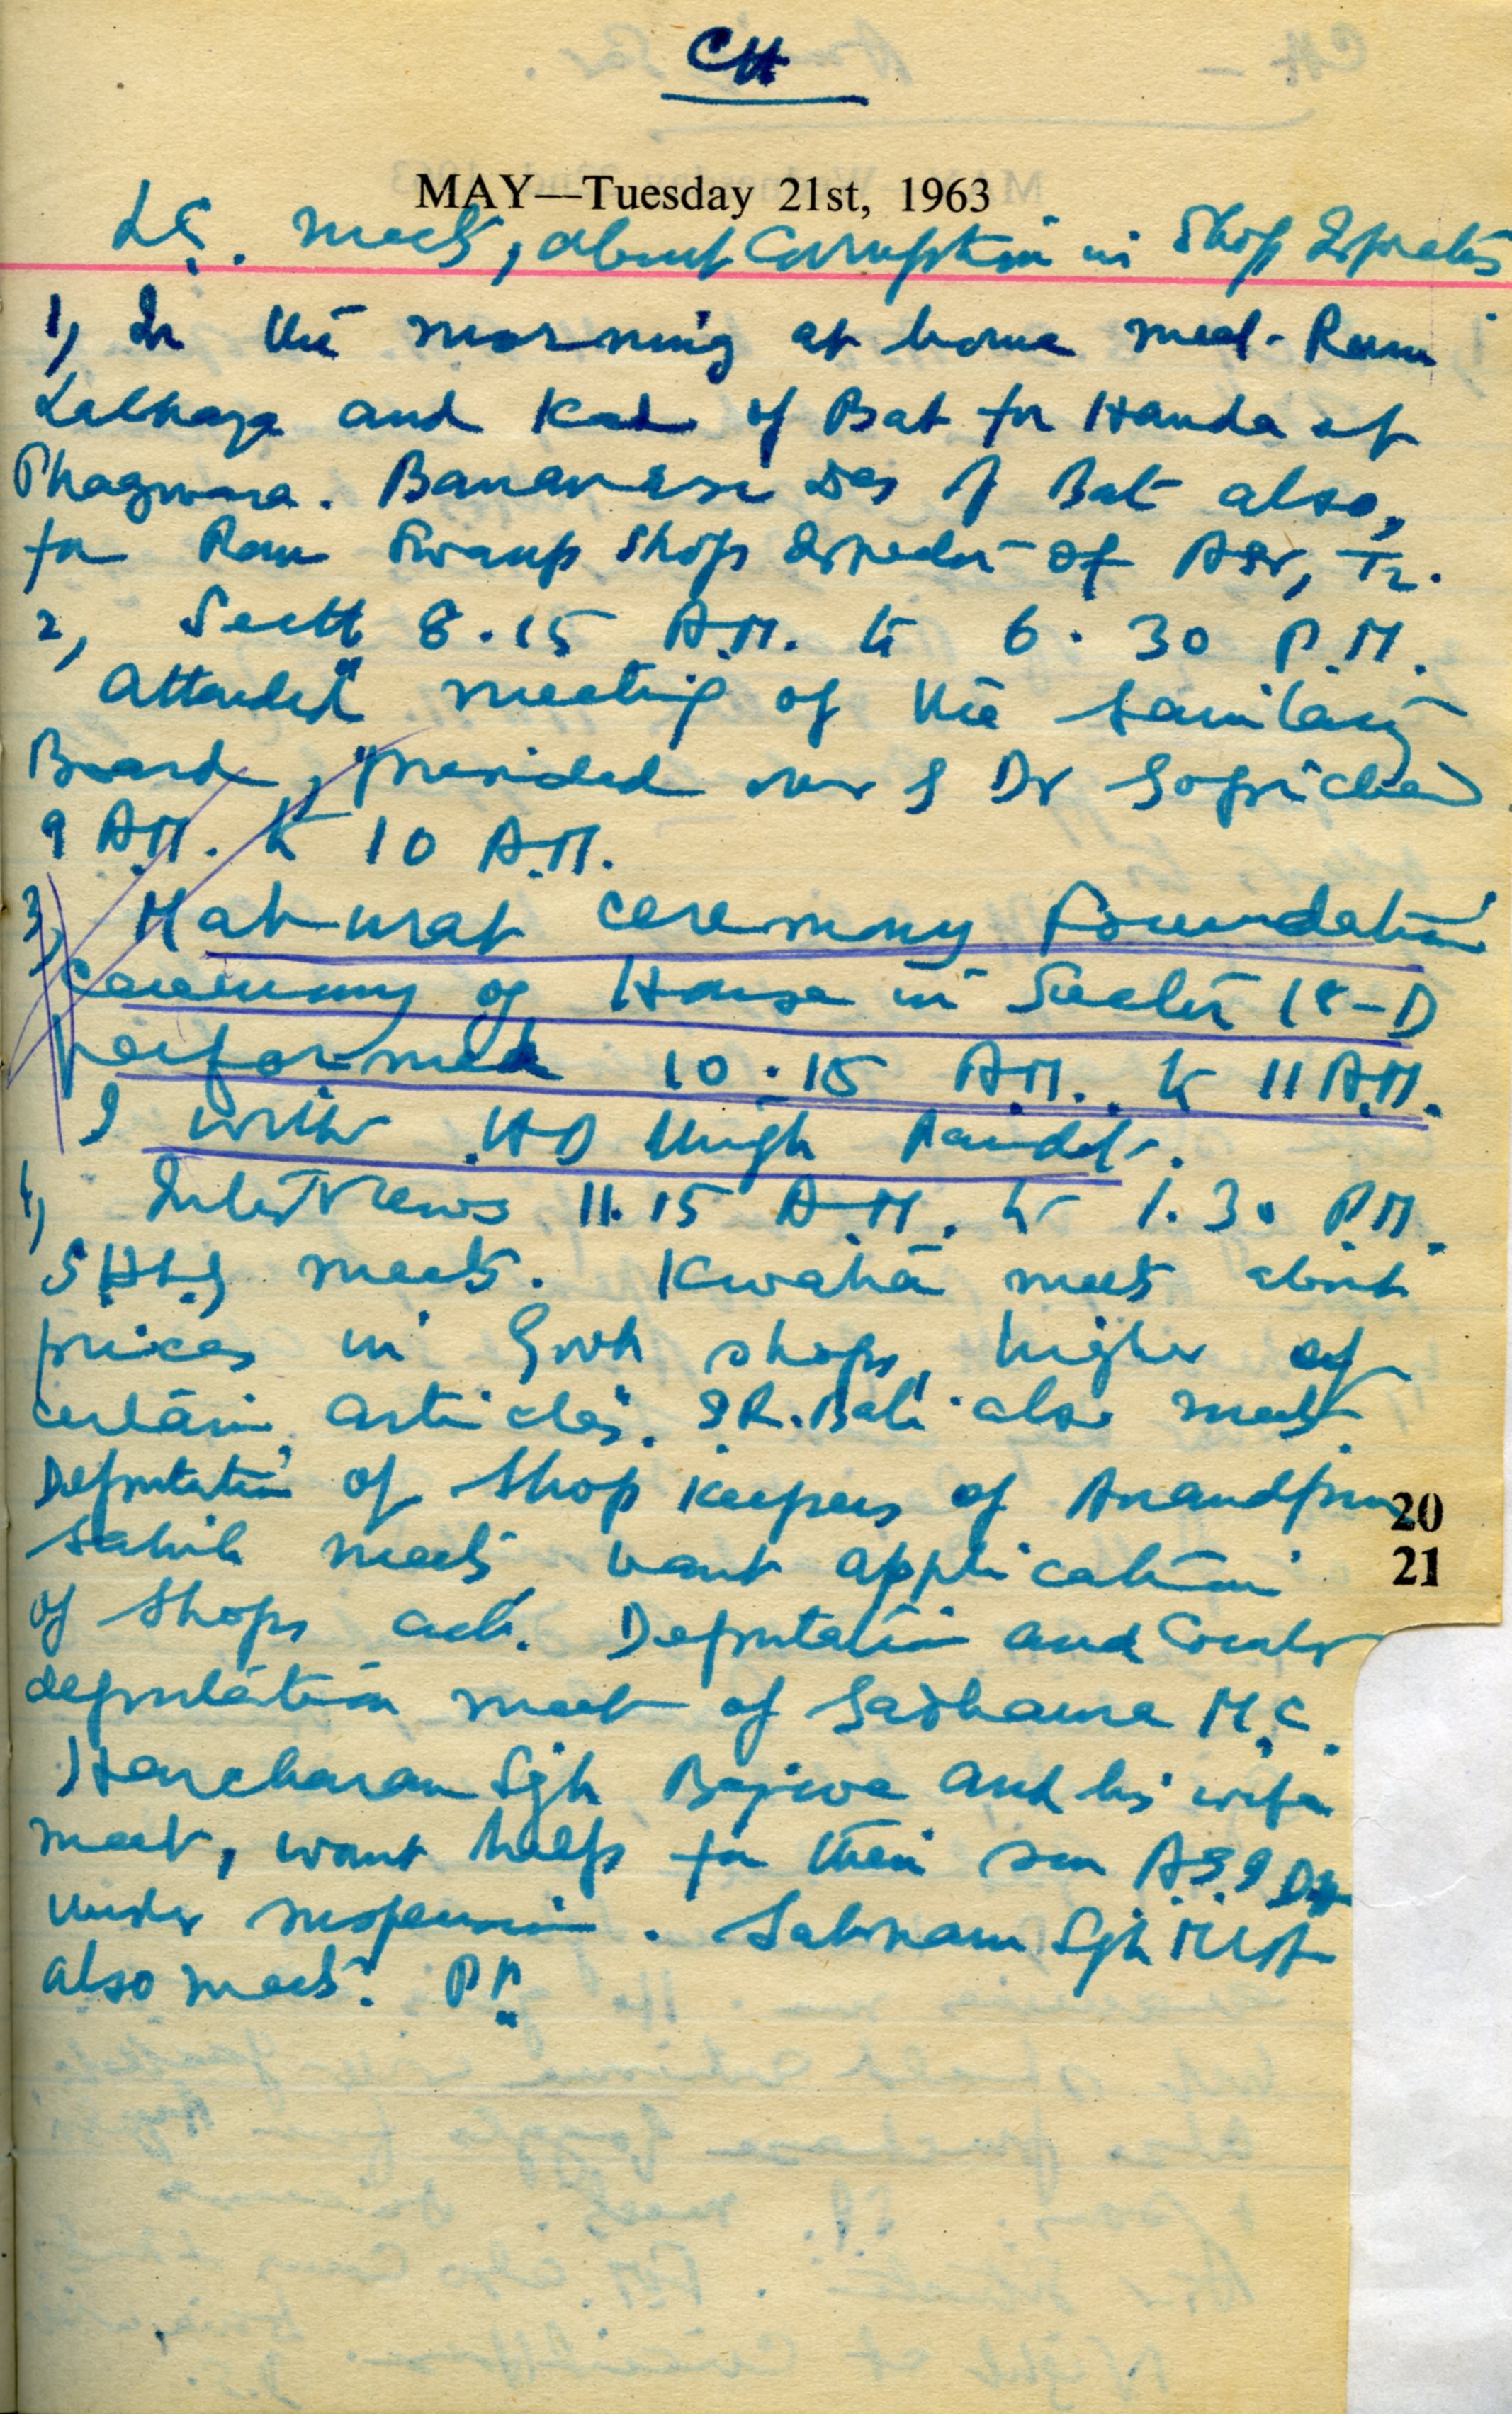 CH
MAY—Tuesday 21st, 1963
L.C. meets, about Corruption in Shop
1, In the morning at home meet Ram
and of Bat for Handa of
Phagwara. Das of Bat also,
for Ram Swarup Shop Inspector of Asr, Tr.
2, Sectt 8.15 A.M. to 6.30 P.M.
Attended meeting of the Sanitary
Board, presided over by Dr Gopichand
9 A.M. to 10 A.M.
3, ceremony Foundation
ceremony of House in Sector 18-D
performed 10.15 A.M. to 11 A.M.
I with
4, Interviews 11.15 A.M. to 1.30 P.M.
meets. meets about
prices in Govt shops, higher of
certain articles. Bali also meets.
Deputation of Shop keepers of Anandpur
20
Sahib meets want application
21
of Shops act. Deputation and Counter
deputation meet of M.C.
Harcharan Sgh Bajwa and his wife
meet, want help for their son
under suspension. Satnam Sgh
also meets. PM